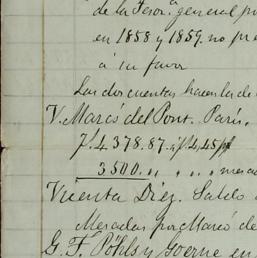 de la Tesor.ª general p
en 1858 y 1859. no pre
á su favor
Las dos cuentas hacen la de
V. Marcó del Pont. Paris.
f. 4378.87. á f. 4,45 pf
3500.,, ,, ,, ,, mesa
Vicenta Diez. Saldo
Mesadas por Marcó de
G. F. Pöhls y Goerne en